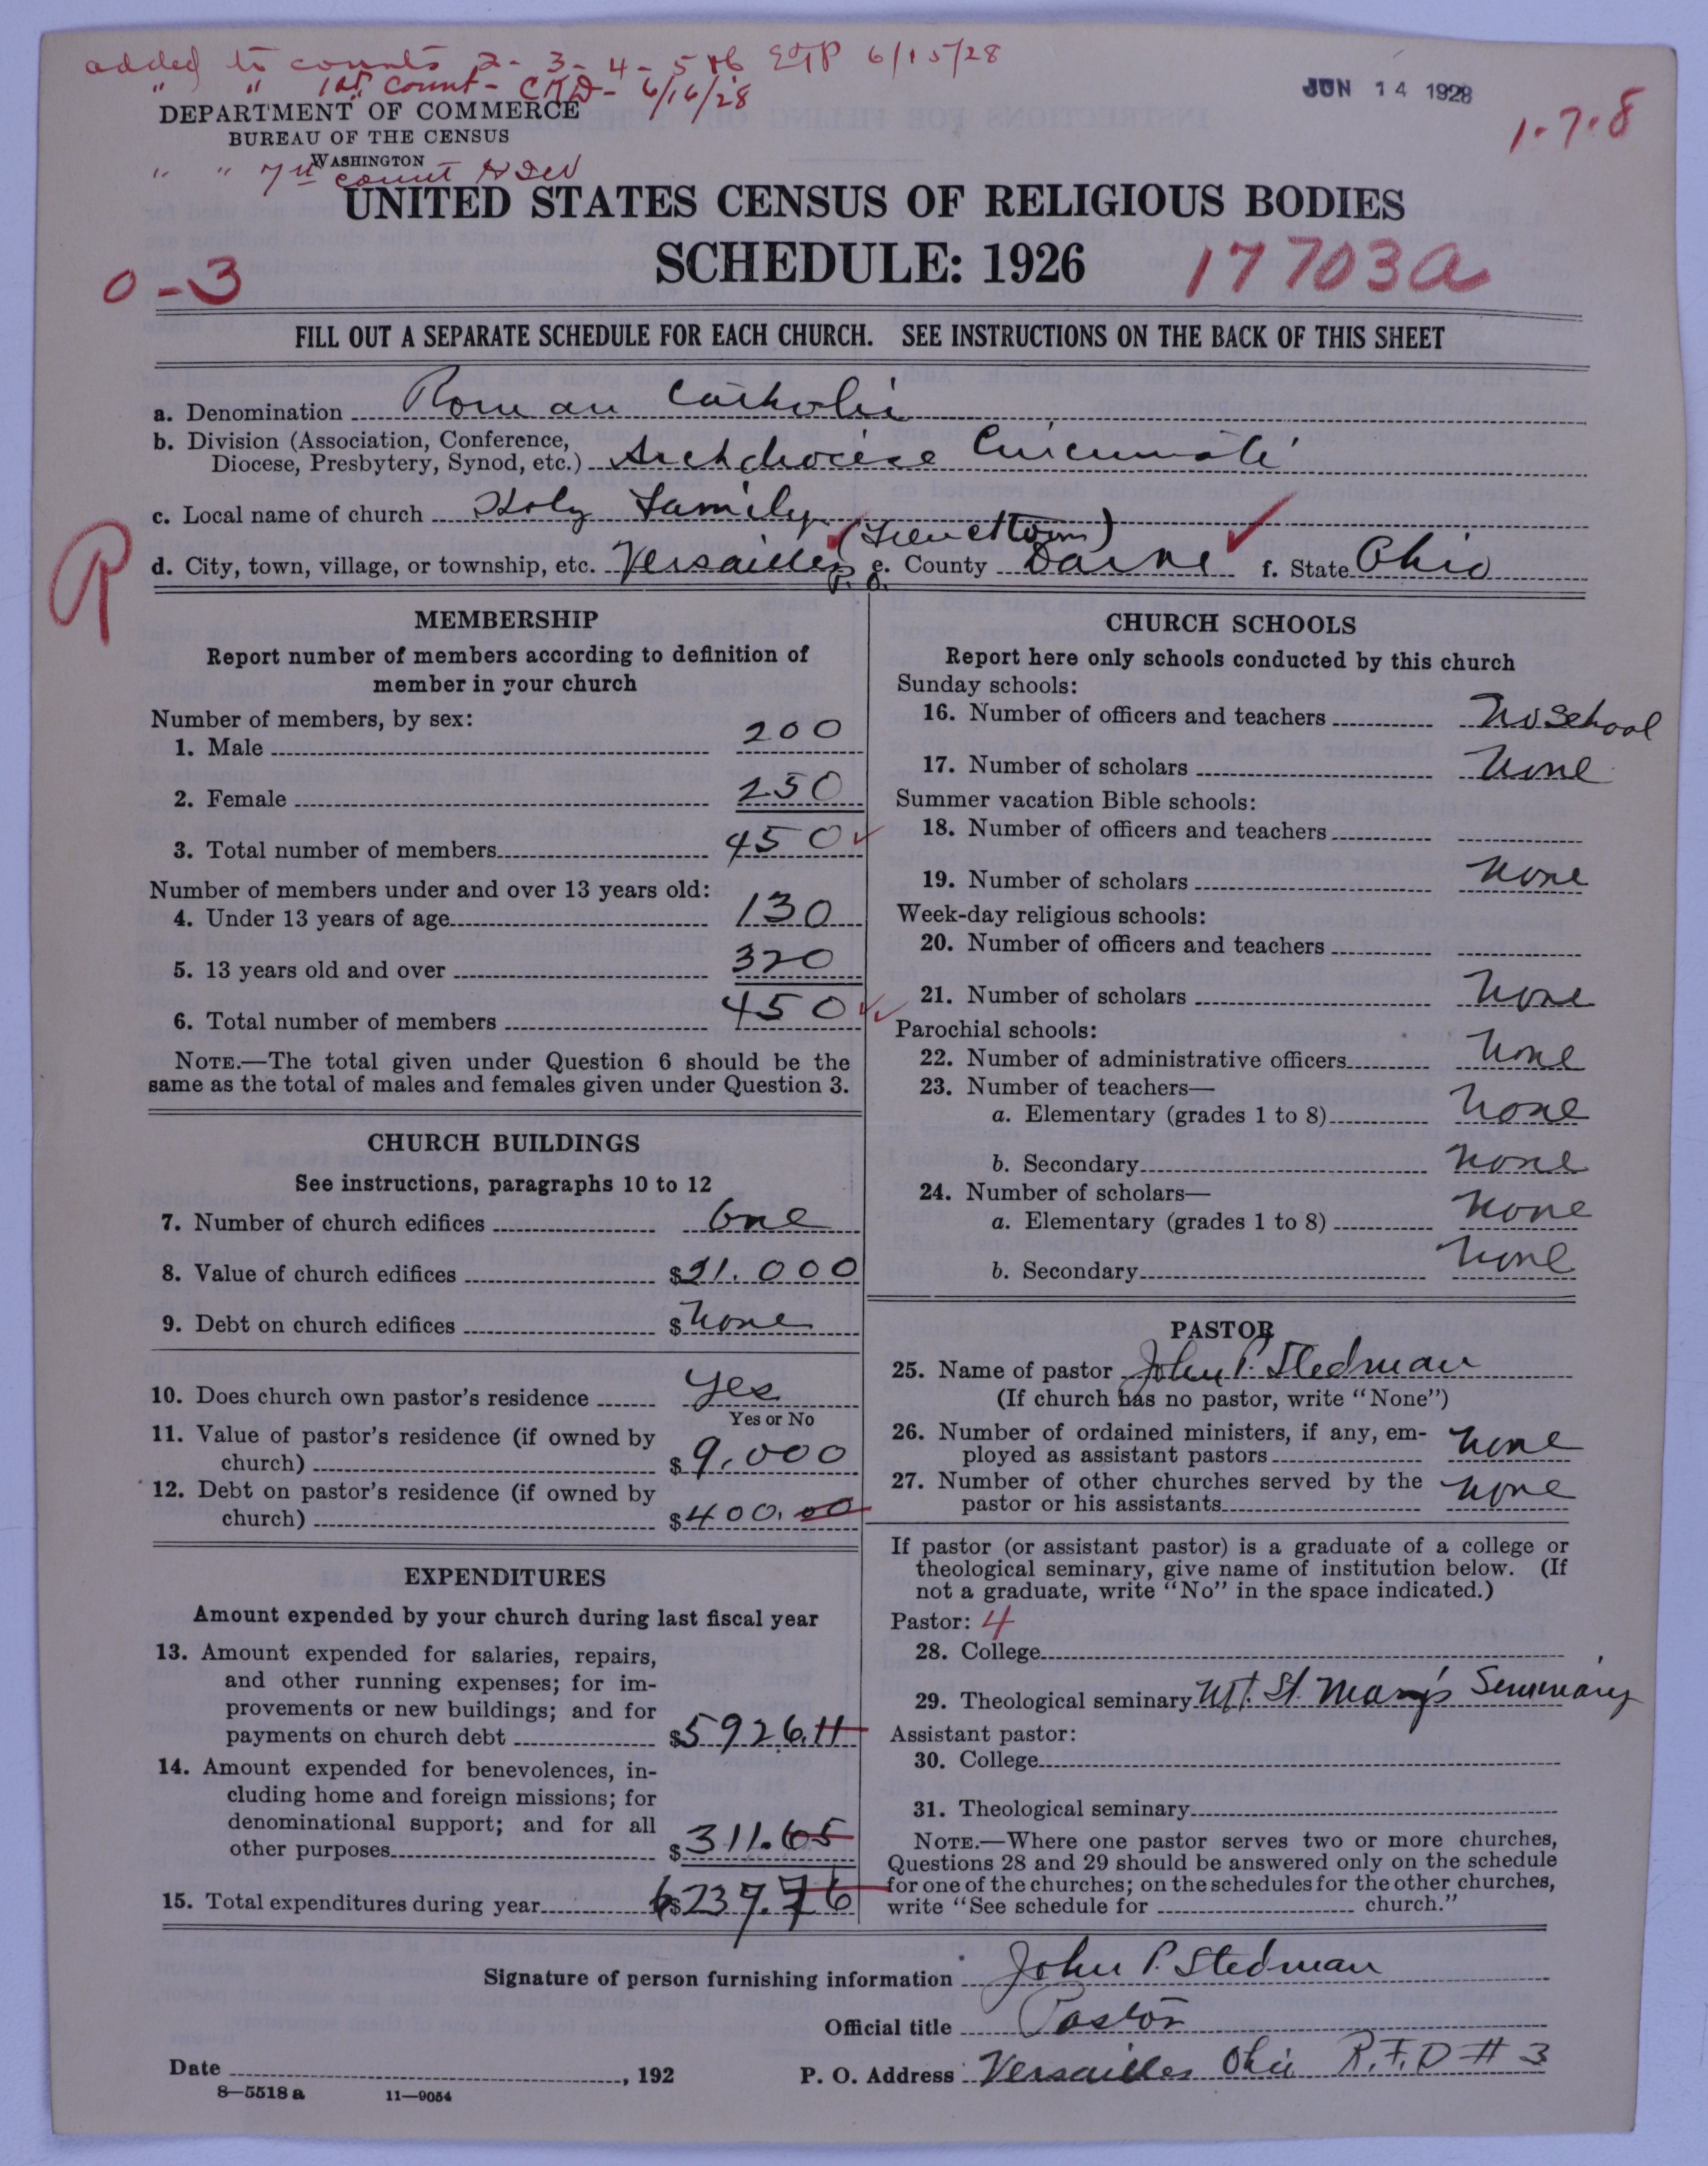 added to counts 2-3-4-5+6 EGP 6/15/28
" " 1st count - CKD - 6/16/28
JUN 14 1928
1-7-8
DEPARTMENT OF COMMERCE
BUREAU OF THE CENSUS
WASHINGTON
" " 7th count
UNITED STATES CENSUS OF RELIGIOUS BODIES
SCHEDULE: 1926
17703a
0-3
FILL OUT A SEPARATE SCHEDULE FOR EACH CHURCH. SEE INSTRUCTIONS ON THE BACK OF THIS SHEET
a. Denomination Roman Catholic
b. Division (Association, Conference,
Diocese, Presbytery, Synod, etc.) Archdiocese Cincinnati
c. Local name of church Holy Family
(Frenchtown)
R
d. City, town, village, or township, etc. Versailles P. O. e. County Darke f. State Ohio
MEMBERSHIP
Report number of members according to definition of
member in your church
Number of members, by sex:
1. Male 200
2. Female 250
3. Total number of members 450
Number of members under and over 13 years old:
4. Under 13 years of age 130
5. 13 years old and over 320
6. Total number of members 450
NOTE.—The total given under Question 6 should be the
same as the total of males and females given under Question 3.
CHURCH BUILDINGS
See instructions, paragraphs 10 to 12
7. Number of church edifices One
8. Value of church edifices $ 000
9. Debt on church edifices $ None
10. Does church own pastor's residence Yes
Yes or No
11. Value of pastor's residence (if owned by
church) $ 9,000
12. Debt on pastor's residence (if owned by
church) $ 400.00
EXPENDITURES
Amount expended by your church during last fiscal year
13. Amount expended for salaries, repairs,
and other running expenses; for im-
provements or new buildings; and for
payments on church debt $ 5926.11
14. Amount expended for benevolences, in-
cluding home and foreign missions; for
denominational support; and for all
other purposes $ 311.65
15. Total expenditures during year $ 6237.76
CHURCH SCHOOLS
Report here only schools conducted by this church
Sunday schools:
16. Number of officers and teachers No School
17. Number of scholars None
Summer vacation Bible schools:
18. Number of officers and teachers
19. Number of scholars None
Week-day religious schools:
20. Number of officers and teachers
21. Number of scholars None
Parochial schools:
22. Number of administrative officers None
23. Number of teachers—
a. Elementary (grades 1 to 8) None
b. Secondary None
24. Number of scholars—
a. Elementary (grades 1 to 8) None
b. Secondary None
PASTOR
25. Name of pastor John P. Stedman
(If church has no pastor, write "None")
26. Number of ordained ministers, if any, em-
ployed as assistant pastors None
27. Number of other churches served by the
pastor or his assistants None
If pastor (or assistant pastor) is a graduate of a college or
theological seminary, give name of institution below. (If
not a graduate, write "No" in the space indicated.)
Pastor: 4
28. College
29. Theological seminary Mt. St. Mary's Seminary
Assistant pastor:
30. College
31. Theological seminary
NOTE.—Where one pastor serves two or more churches,
Questions 28 and 29 should be answered only on the schedule
for one of the churches; on the schedules for the other churches,
write "See schedule for church."
Signature of person furnishing information John P. Stedman
Official title Pastor
Date , 192
P. O. Address Versailles Ohio R.F.D # 3
8—5518 a 11—9054